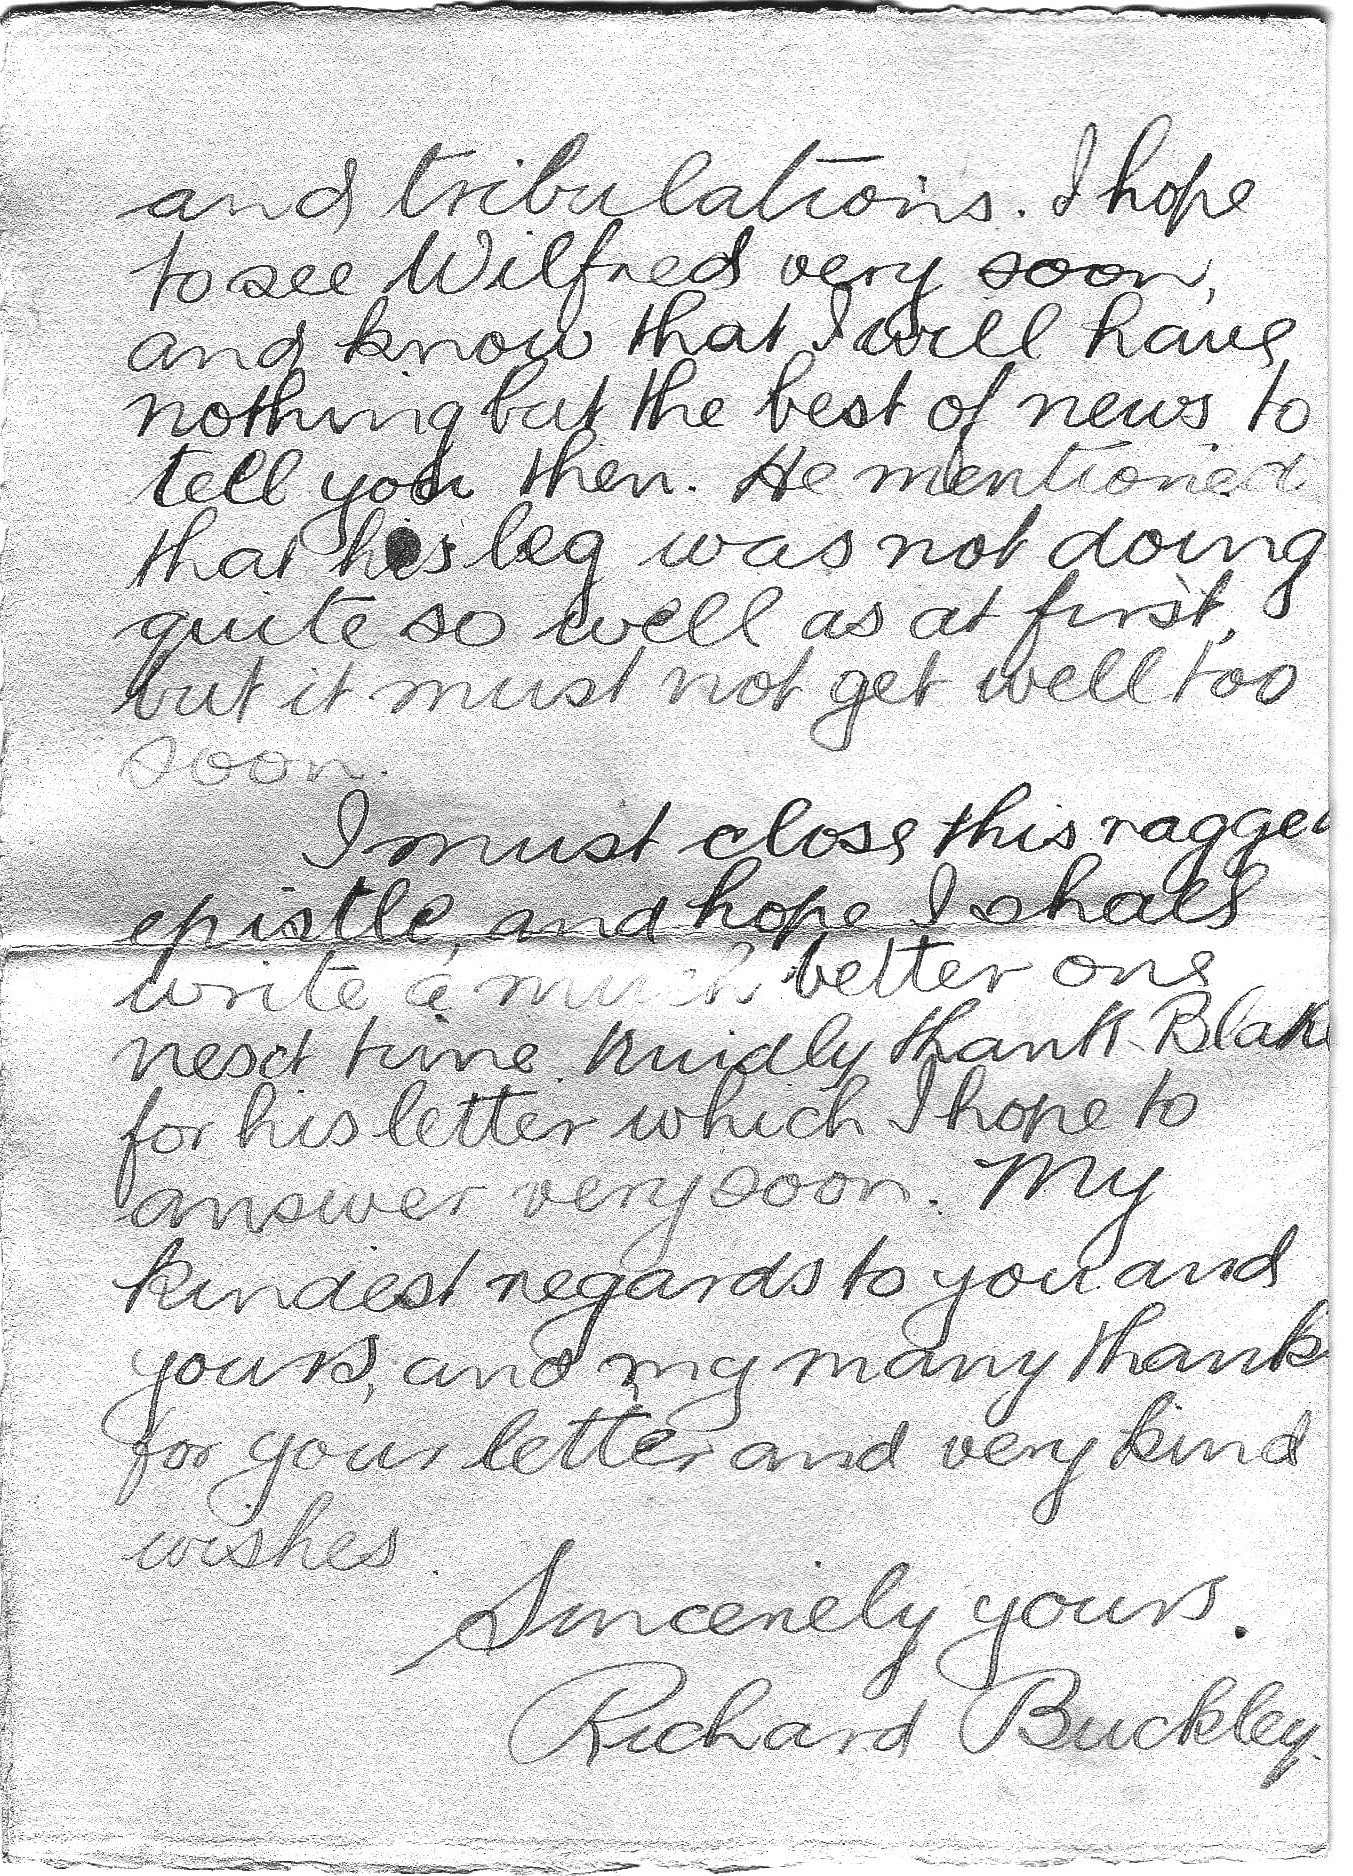 and tribulations. I hope
to see Wilfred very soon,
and know that I will have
nothing but the best of news to
tell you then. He mentioned
that his leg was not doing
quite so well as at first,
but it must not get well too
soon.
I must close this ragged
epistle, and hope I shall
write a much better one
next time. Kindly thank Blake
for his letter which I hope to
answer very soon. My
kindest regards to you and
yours, and my many thanks
for your letter and very kind
wishes.
Sincerely yours.
Richard Buckley.